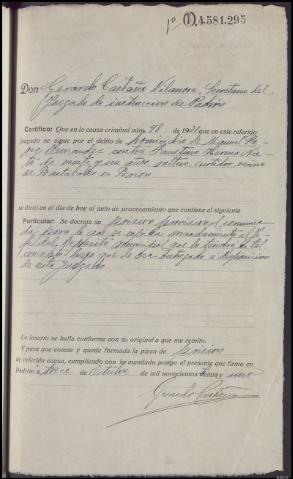 1º (1) 4.581.295
Don Gerardo Castaño Vilanova, Secretario del
Juzgado de instruccion de Padrón
Certifico: Que en la causa criminal núm. 78 de 1931 que en este referido
juzgado se sigue por el delito de homicidio de Miguel
contra Faustino
de veinte y un años soltero vecino
de en Padrón
se dictó en el día de hoy el auto de procesamiento que contiene el siguiente
Particular: Se decreta su prision provisional comunica
da, para lo que se expida mandamiento al
del Deposito municipal que lo tendrá en tal
concepto luego que le sea entregado a disposicion
de este Juzgado
Lo inserto se halla conforme con su original a que me remito.
Y para que conste y quede formada la pieza de prision
de referida causa, cumpliendo con lo mandado pongo el presente que firmo en
Padrón a trece de Octubre de mil novecientos treinta y uno
Gerardo Castaño